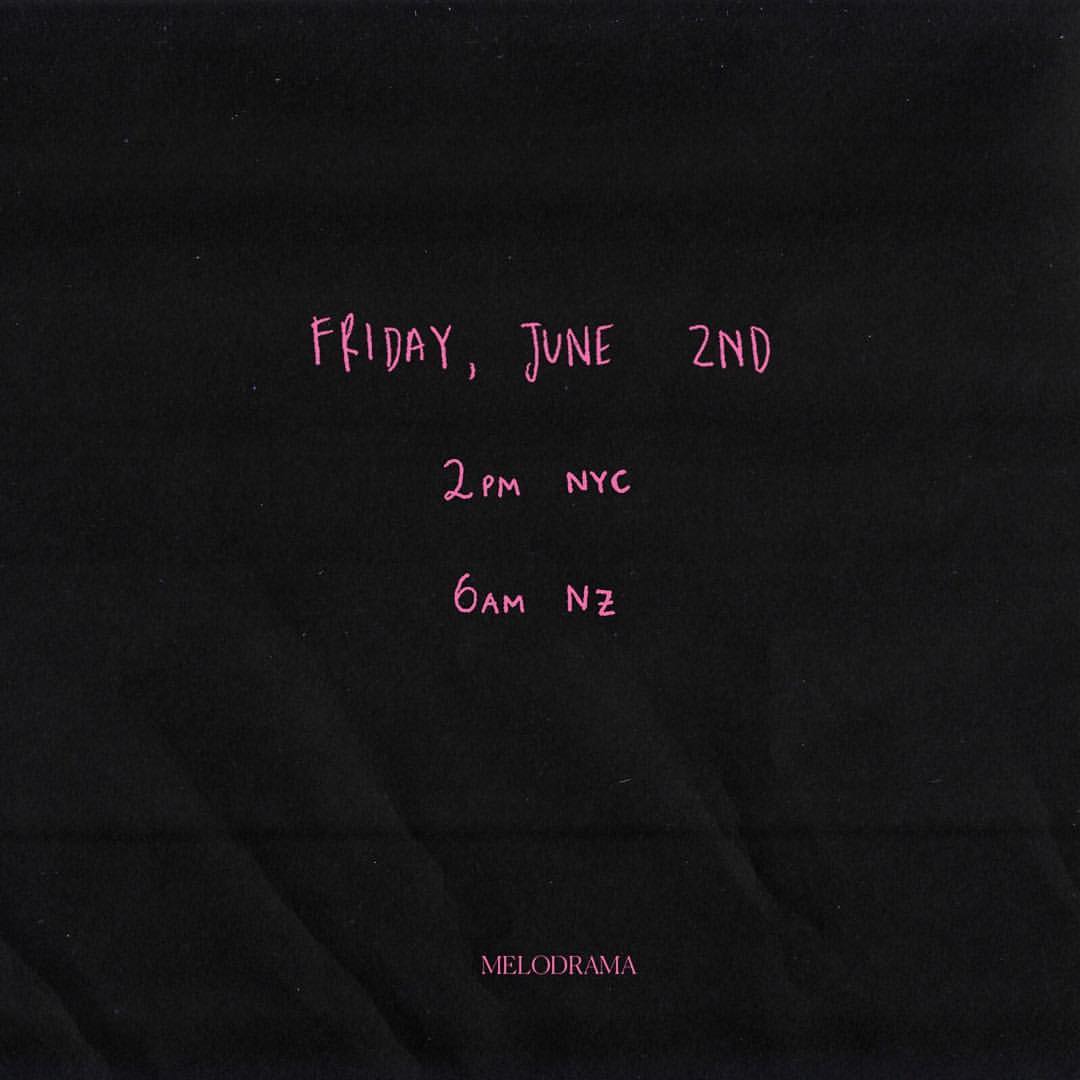 FRIDAY, JUNE 2ND
2PM NYC
6AM NZ
MELODRAMA